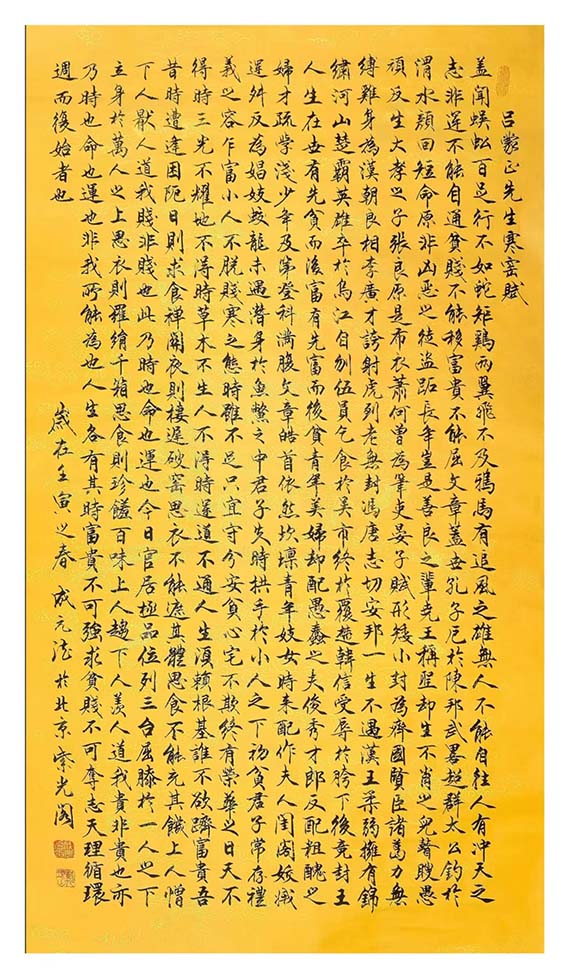 呂蒙正先生寒窑賦
盖聞蜈蚣百足行不如蛇矩鷄两翼飛不及鴉馬有追風之雄無人不能自往人有冲天之
志非運不能自通貧賤不能移富貴不能屈文章盖世孔子厄於陳邦武畧超群太公钓於
渭水顔回短命原非凶恶之徒盗跖長年豈是善良之輩尭王稱聖却生不肖之兒瞽瞍愚
頑反生大孝之子張良原是布衣蕭何曾為筆吏晏子賦形矮小封為齊國賢臣諸葛力無
縛雞身為漢朝良相李廣才誇射虎到老無封馮唐志切安邦一生不遇漢王柔弱擁有錦
繡河山楚霸英雄卒於烏江自刎伍員乞食於吴市終於覆楚韓信受辱於胯下後竟封王
人生在世有先貧而後富有先富而後貧青年美婦却配愚蠢之夫俊秀才郎反配粗醜之
婦才疏學淺少年及第登科满腹文章皓首依然坎壈青年妓女時来配作夫人闺阁姣娥
運舛反為娼妓蛟龍未遇潜身於魚鱉之中君子失時拱手於小人之下初貧君子常存禮
義之容乍富小人不脱賤寒之態時雖不足只宜守分安貧心宅不欺終有榮華之日天不
得時三光不耀地不得時草木不生人不得時運道不通人生須賴根基誰不欲躋富貴吾
昔時遭逢困阨日則求食禅閣夜則棲遲破窑思衣不能遮其體思食不能充其饑上人憎
下人厭人道我賤非賤也此乃時也命也運也今日官居極品位列三台屈膝於一人之下
立身於萬人之上思衣則羅绡千箱思食則珍饈百味上人趨下人羡人道我貴非貴也亦
乃時也命也運也非我所能為也人生各有其時富貴不可強求貧賤不可奪志天理循環
週而復始者也
歲在壬寅之春 成元法於北京紫光阁